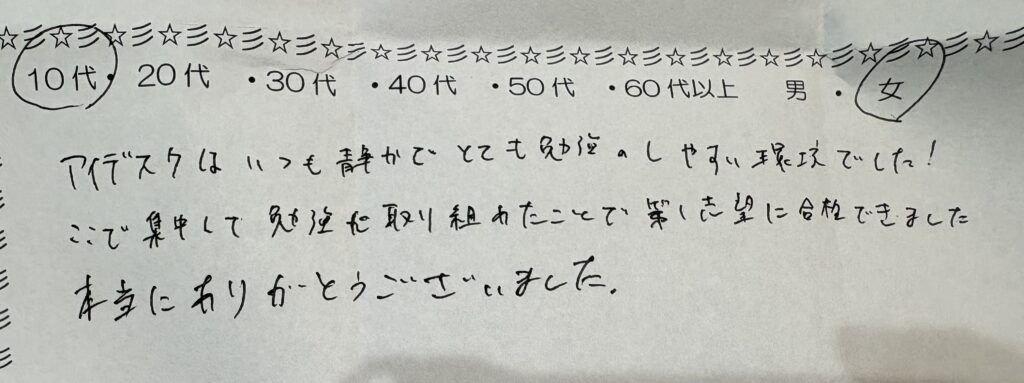 10代・20代・30代・40代・50代・60代以上 男・女
アイデスクはいつも静かでとても勉強のしやすい環境でした!
ここで集中して勉強に取り組めたことで第1志望に合格できました
本当にありがとうございました.